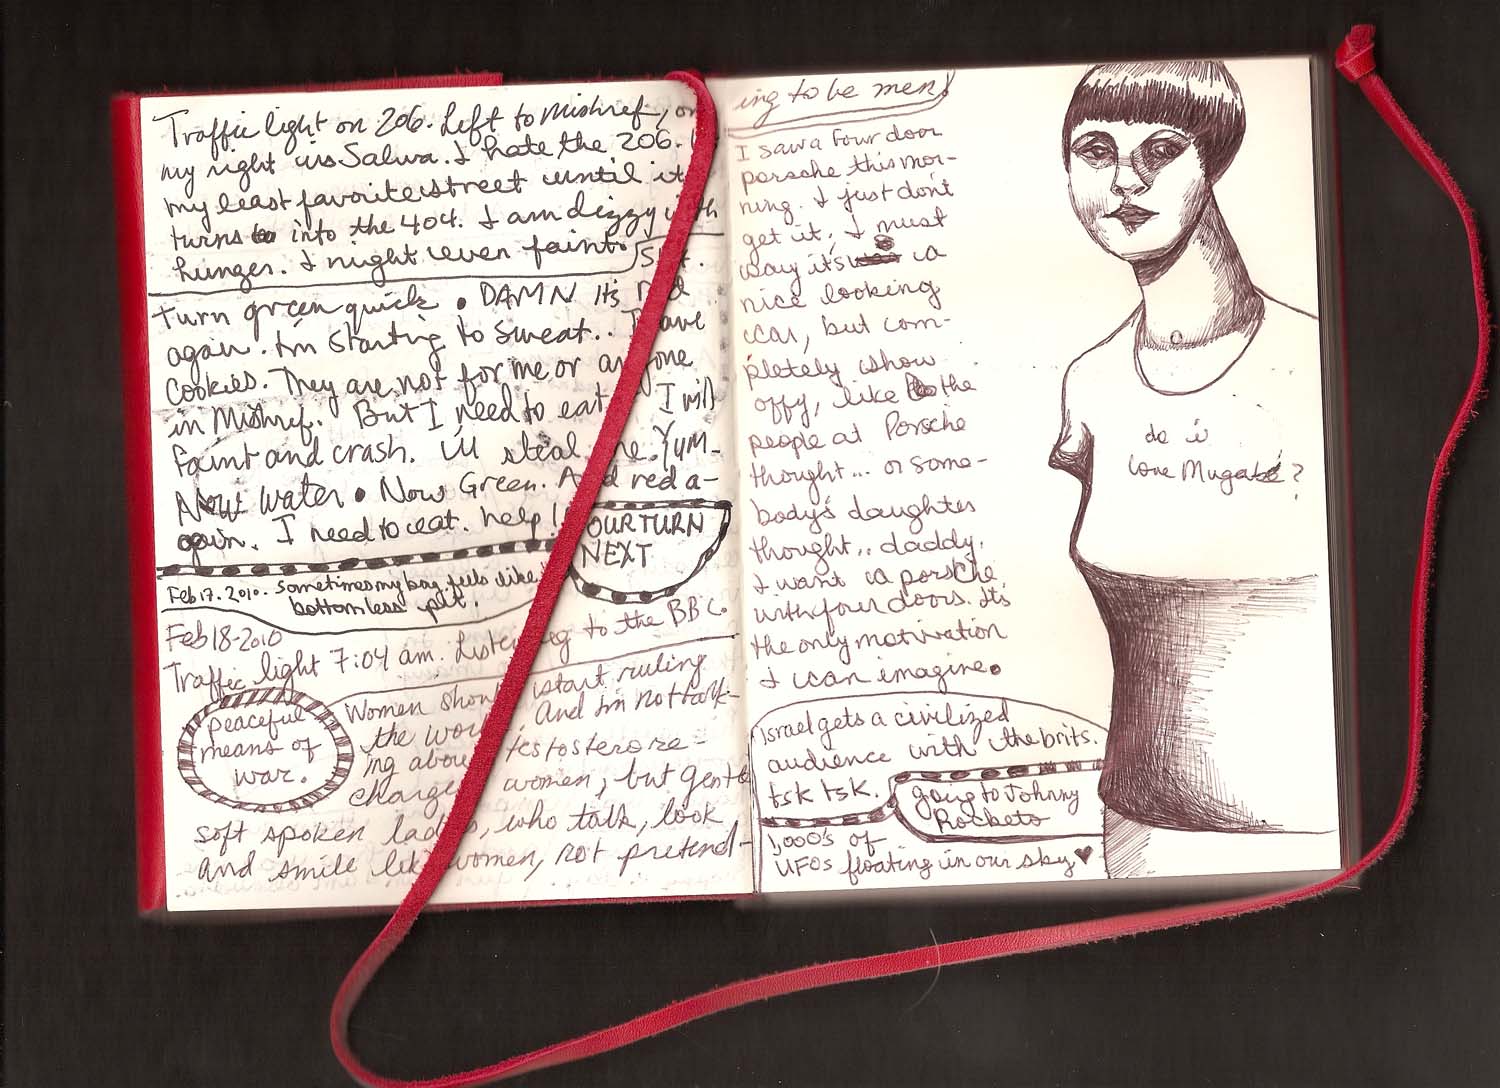 Traffic light on 206. Left to Mishref, on
my right is Salwa. I hate the 206.
my least favorite street until it
turns into the 404. I am dizzy with
hunger. I might even faint.
turn green quick . DAMN Its red
again. I'm starting to sweat.. I have
cookies. They are not for me or anyone
in Mishref. But I need to eat I will
faint and crash. I'll steal one. Yum.
Now water . Now Green. And red a-
gain. I need to eat. help!
OUR TURN
NEXT
Feb 17. 2010. sometimes my bag feels like
bottomless pit.
Feb 18-2010
Traffic light 7:04 am. Listening to the BBC.
peaceful
means of
war.
Women should start ruling
the world. And I'm not talk-
ing about testosterone-
charged women, but gentle
soft spoken ladies, who talk, look
and smile like women, not pretend-
ing to be men!
I saw a four door
porsche this mor-
ning. I just don't
get it. I must
say it's a
nice looking
car, but com-
pletely show
offy, like the
people at Porsche
thought... or some-
body's daughter
thought.. daddy,
I want a porsche
with four doors. Its
the only motivation
I can imagine.
Israel gets a civilized
audience with the brits.
tsk tsk.
going to Johnny
Rockets
1,000's of
UFOs floating in our sky ♥
do i
love Mugatu?